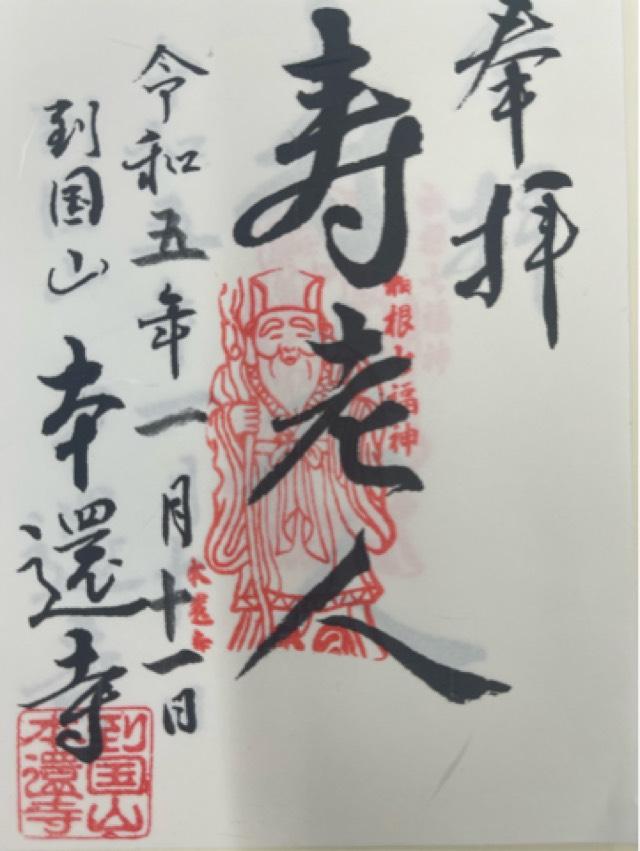 奉拝
寿老人
箱根七福神
令和五年一月十一日
本還寺
到国山
本還寺
到国山
本還寺